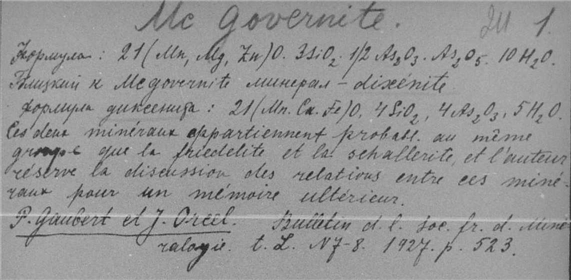 Mc Governite. 1.
Формула: 21(Mn, Mg, Zn)O. 3SiO₂. 1/2 As₂O₃. As₂O₅. 10H₂O.
Близкий к Mcgovernite минерал - dixénite
формула диксенита: 21(Mn. Ca. Fe)O, 4SiO₂, 4As₂O₃, 5H₂O.
Ces deux minéraux appartiennent probabl. au même
groupe que la friedelite et la schallerite, et l'auteur
réserve la discussion des relations entre ces miné-
raux pour un mémoire ultérieur.
P. Gaubert et J. Orcel. Bulletin d. l. soc. fr. d. Miné
ralogie. t. L. N7-8. 1927. p. 523.